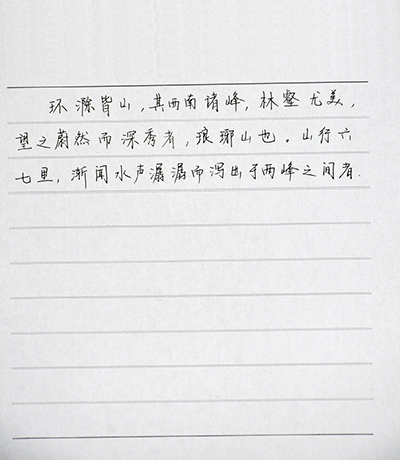 环滁皆山，其西南诸峰，林壑尤美，
望之蔚然而深秀者，琅琊山也。山行六
七里，渐闻水声潺潺而泻出于两峰之间者.